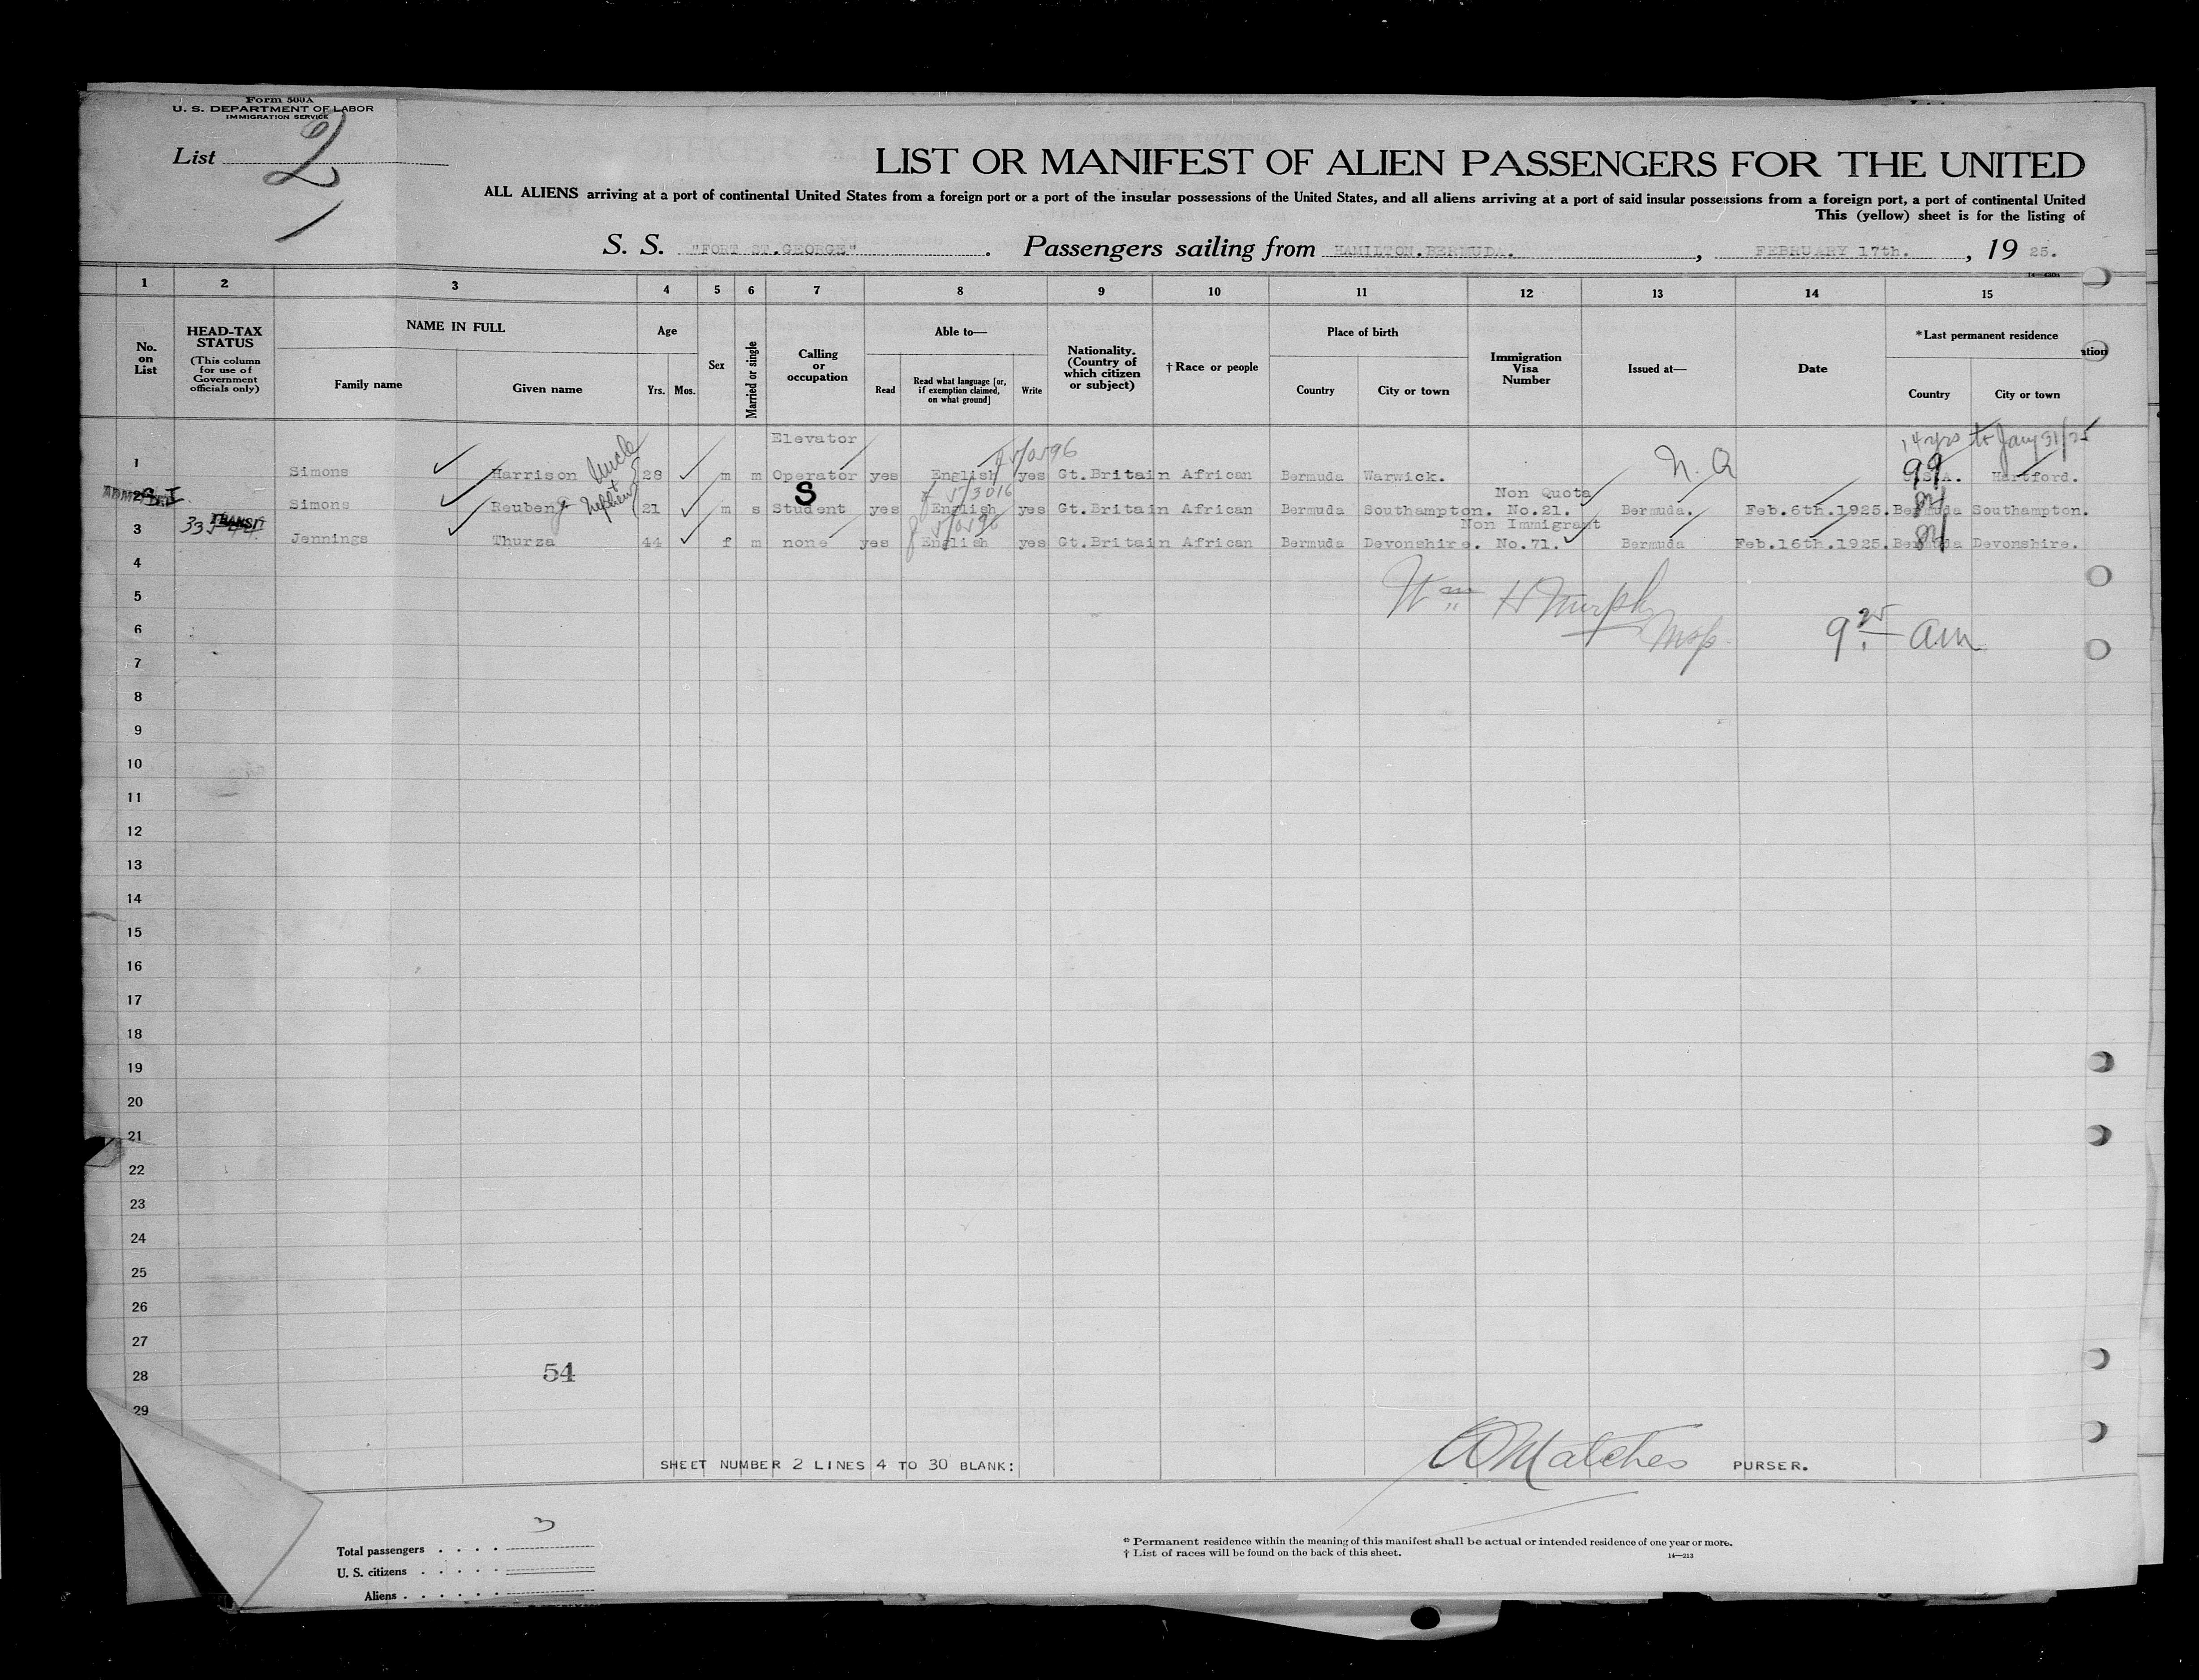 Form 500A
U. S. DEPARTMENT OF LABOR
IMMIGRATION SERVICE
List 2
LIST OR MANIFEST OF ALIEN PASSENGERS FOR THE UNITED
ALL ALIENS arriving at a port of continental United States from a foreign port or a port of the insular possessions of the United States, and all aliens arriving at a port of said insular possessions from a foreign port, a port of continental United
This (yellow) sheet is for the listing of
S. S. "FORT ST.GEORGE" . Passengers sailing from HAMILTON.BERMUDA. , FEBRUARY 17th. , 19 25.
1 2 3 4 5 6 7 8 9 10 11 12 13 14 15
No. on List
HEAD-TAX STATUS (This column for use of Government officials only)
NAME IN FULL
Family name Given name
Age
Yrs. Mos.
Sex
Married or single
Calling or occupation
Able to—
Read Read what language [or, if exemption claimed, on what ground] Write
Nationality. (Country of which citizen or subject)
† Race or people
Place of birth
Country City or town
Immigration Visa Number
Issued at—
Date
*Last permanent residence
Country City or town
ation
Elevator 14 yrs to Jany 31/25
1 Simons Harrison Uncle 28 m m Operator yes English yes Gt.Britain African Bermuda Warwick. N. Q 99 U.S.A. Hartford.
ADMITTED S I S Non Quota
2 Simons Reuben Nephew 21 m s Student yes English yes Gt.Britain African Bermuda Southampton. No.21. Bermuda. Feb.6th.1925. Bermuda Southampton.
TRANSIT Non Immigrant
3 Jennings Thurza 44 f m none yes English yes Gt.Britain African Bermuda Devonshire. No.71. Bermuda Feb.16th.1925. Bermuda Devonshire.
4
5 Wm H Murphy
6 Insp. 9 25 am
7
8
9
10
11
12
13
14
15
16
17
18
19
20
21
22
23
24
25
26
27
28 54
29
SHEET NUMBER 2 LINES 4 TO 30 BLANK: Matches PURSER.
Total passengers . . . . 3
U. S. citizens . . . . .
Aliens . . . . .
* Permanent residence within the meaning of this manifest shall be actual or intended residence of one year or more.
† List of races will be found on the back of this sheet.
14—213